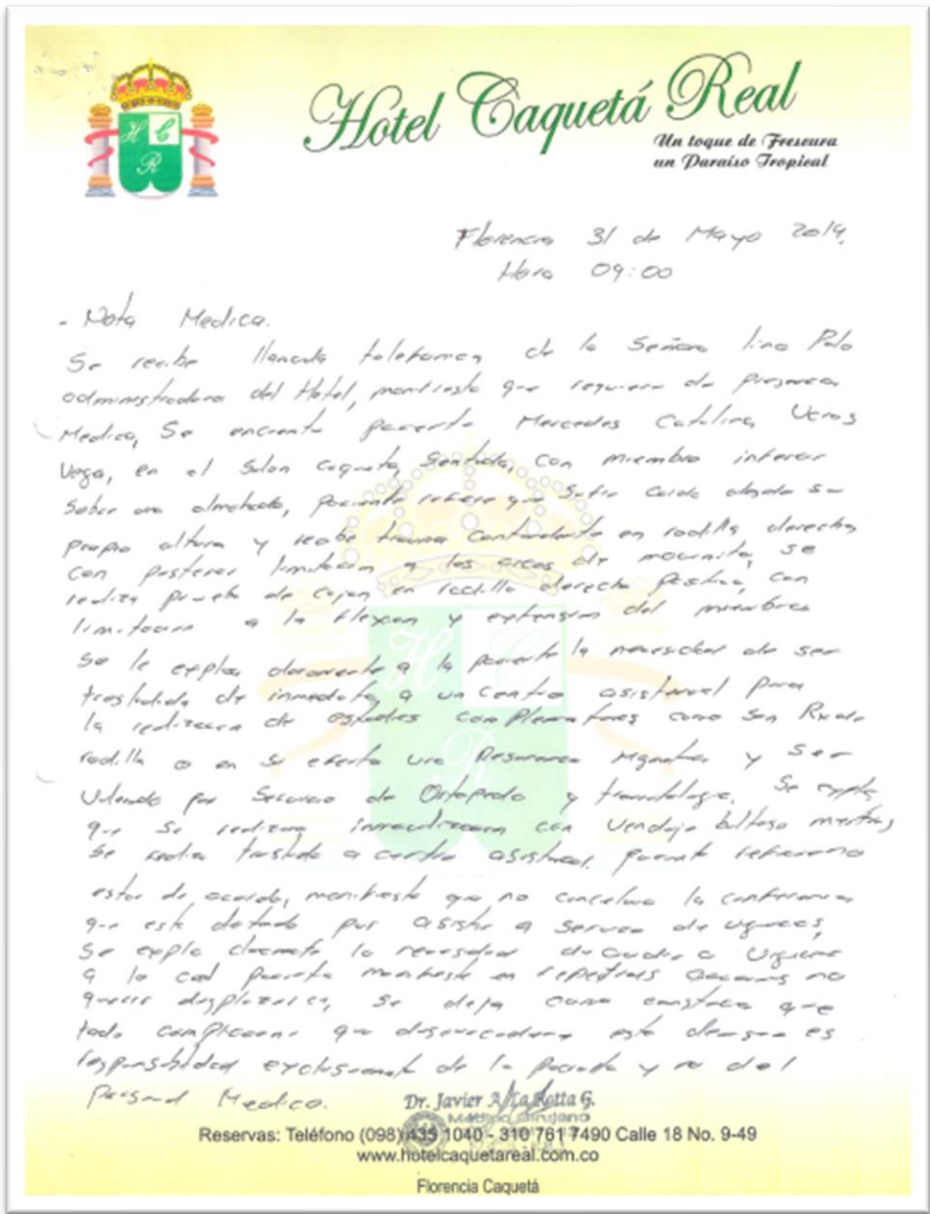 Hotel Caquetá Real
Un toque de Frescura
un Paraíso Tropical
H C
R
Florencia 31 de Mayo 2014,
Hora 09:00
- Nota Medica.
Se recibe llamada telefonica de la Señora lina Polo
administradora del Hotel, manifiesta que requiere de presencia
Medica, Se encuentra paciente Mercedes Catalina Ueros
Vega, en el Salon Caqueta, Sentada, con miembro inferior
Sobre una almohada, paciente refiere que Sufrio Caida desde su
propia altura y recibe trauma Contundente en rodilla derecha
con posterior limitacion a los arcos de movimiento, se
realiza prueba de cajon en rodilla derecha positiva, con
limitacion a la flexion y extension del miembro
Se le explica claramente a la paciente la necesidad de ser
trasladada de inmediato a un centro asistencial para
la realizacion de estudios complementarios como son Rx de
rodilla o en su efecto una Resonancia Magnetica y Ser
Valorada por Servicio de Ortopedia y traumatologia. Se explica
que Se realizara inmovilizacion con Vendaje bultoso mientras
Se realiza traslado a centro asistencial. paciente
estar de acuerdo, manifiesta que no cancelara la conferencia
que esta dictando por asistir a Servicio de urgencias,
Se explica claramente la necesidad de acudir a Urgencias
a lo cual paciente manifiesta en repetidas ocasiones no
querer desplazarse, Se deja como constancia que
toda complicacion que desencadene este es
responsabilidad exclusivamente de la paciente y no del
Personal Medico.
Dr. Javier A. La Rotta G.
Médico Cirujano
Reservas: Teléfono (098) 435 1040 - 310 761 7490 Calle 18 No. 9-49
www.hotelcaquetareal.com.co
Florencia Caquetá